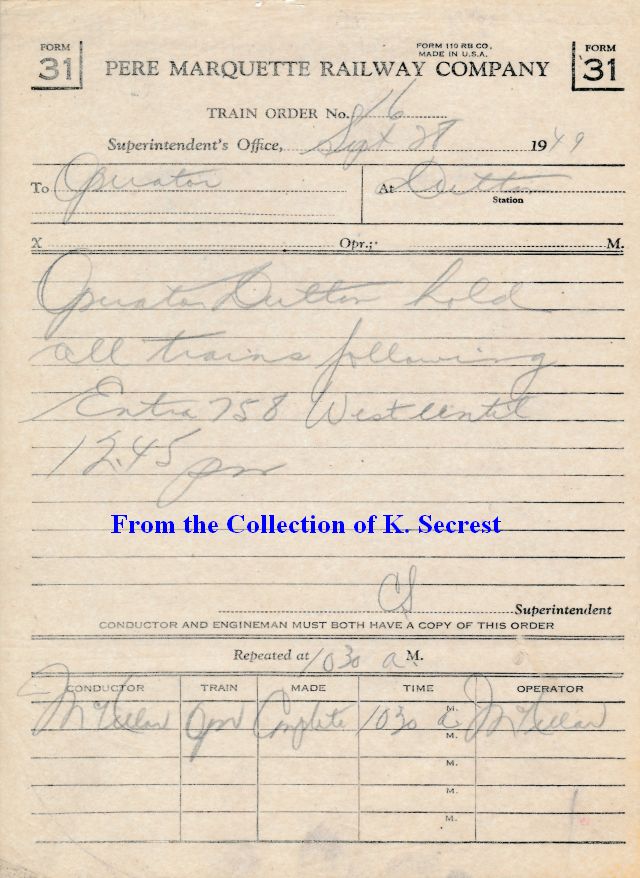 FORM 31
FORM 110 RB CO.
MADE IN U.S.A.
FORM 31
PERE MARQUETTE RAILWAY COMPANY
TRAIN ORDER No. 16
Superintendent's Office, Sept 28 1949
To Operator At Dutton
Station
X Opr.; M.
Operator Dutton hold
all trains following
Extra 758 West until
12.45 pm
From the Collection of K. Secrest
CS Superintendent
CONDUCTOR AND ENGINEMAN MUST BOTH HAVE A COPY OF THIS ORDER
Repeated at 1030 a M.
CONDUCTOR TRAIN MADE TIME OPERATOR
McKellar Opr Complete 1030 a M. McKellar
M.
M.
M.
M.